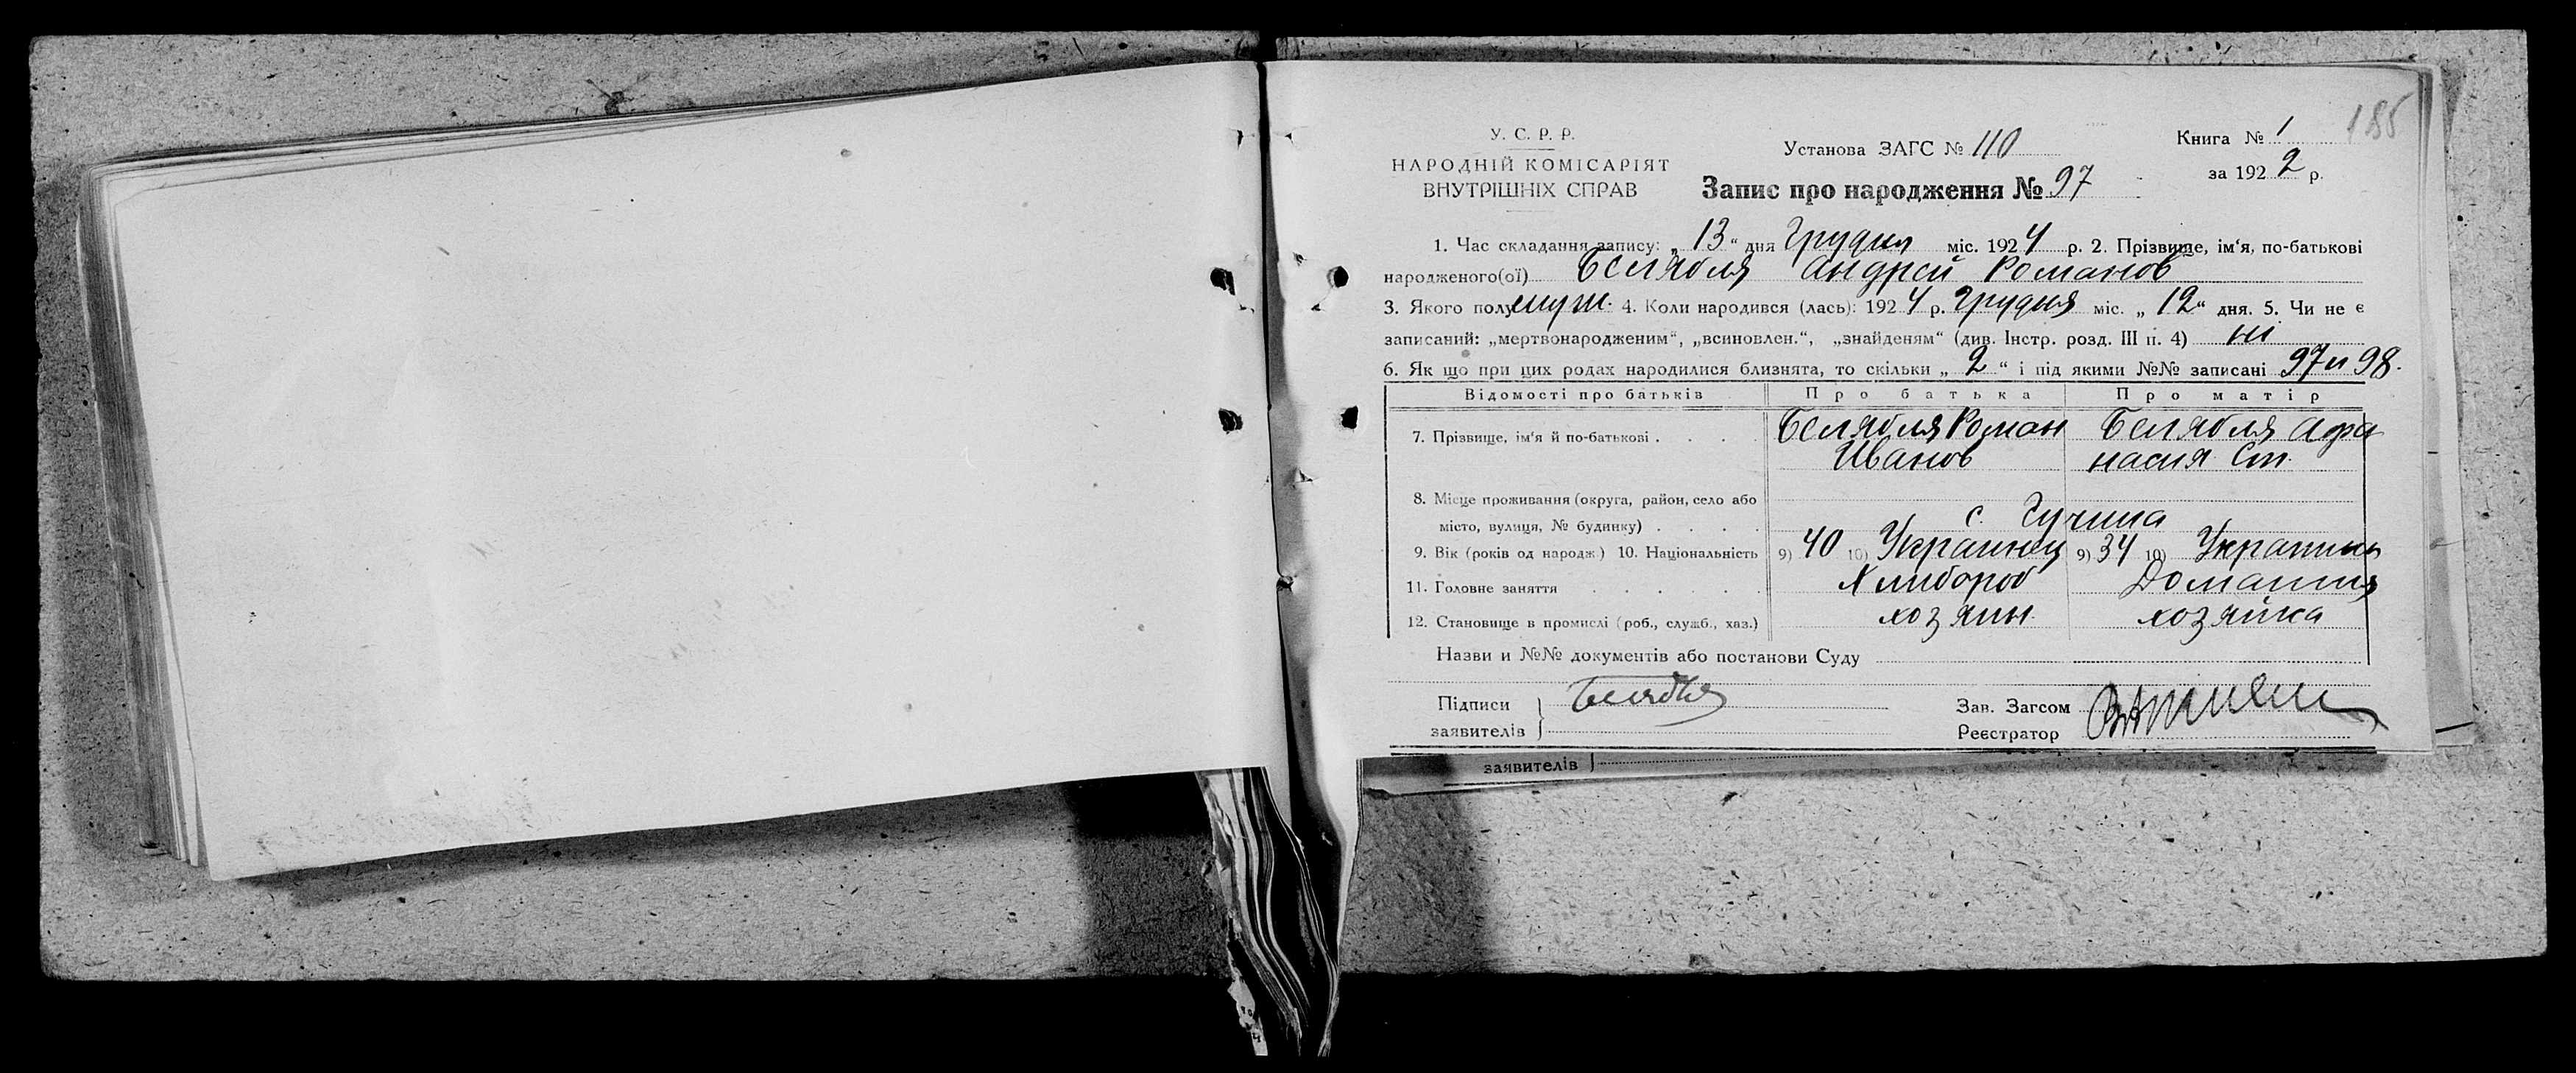 185
У. С. Р. Р.
НАРОДНІЙ КОМІСАРІЯТ
ВНУТРІШНІХ СПРАВ
Установа ЗАГС № 110
Книга № 1
за 1922 р.
Запис про народження № 97
1. Час складання запису: „13“ дня Грудня міс. 1924 р. 2. Прізвище, ім‘я, по-батькові
народженого(ої) Белябля Андрей Романов
3. Якого полу муж. 4. Коли народився (лась): 1924 р. Грудня міс. „12“ дня. 5. Чи не є
записаний: „мертвонародженим“, „всиновлен.“, „знайденям“ (див. Інстр. розд. III п. 4) ні
6. Як що при цих родах народилися близнята, то скільки „2“ і під якими №№ записані 97 и 98.
Відомості про батьків Про батька Про матір
7. Прізвище, ім‘я й по-батькові . . . . Белябля Роман Белябля Афа
Иванов насия Ст.
8. Місце проживання (округа, район, село або
місто, вулиця, № будинку) . . . . с.
9. Вік (років од народж.) 10. Національність 9) 40 10) Украинец 9) 34 10)
11. Головне заняття . . . . . . Хлибороб Домашня
12. Становище в промислі (роб., служб., хаз.) хозяин. хозяйка
Назви и №№ документів або постанови Суду
Підписи
заявителів
Белябля
Зав. Загсом
Реєстратор
заявителів